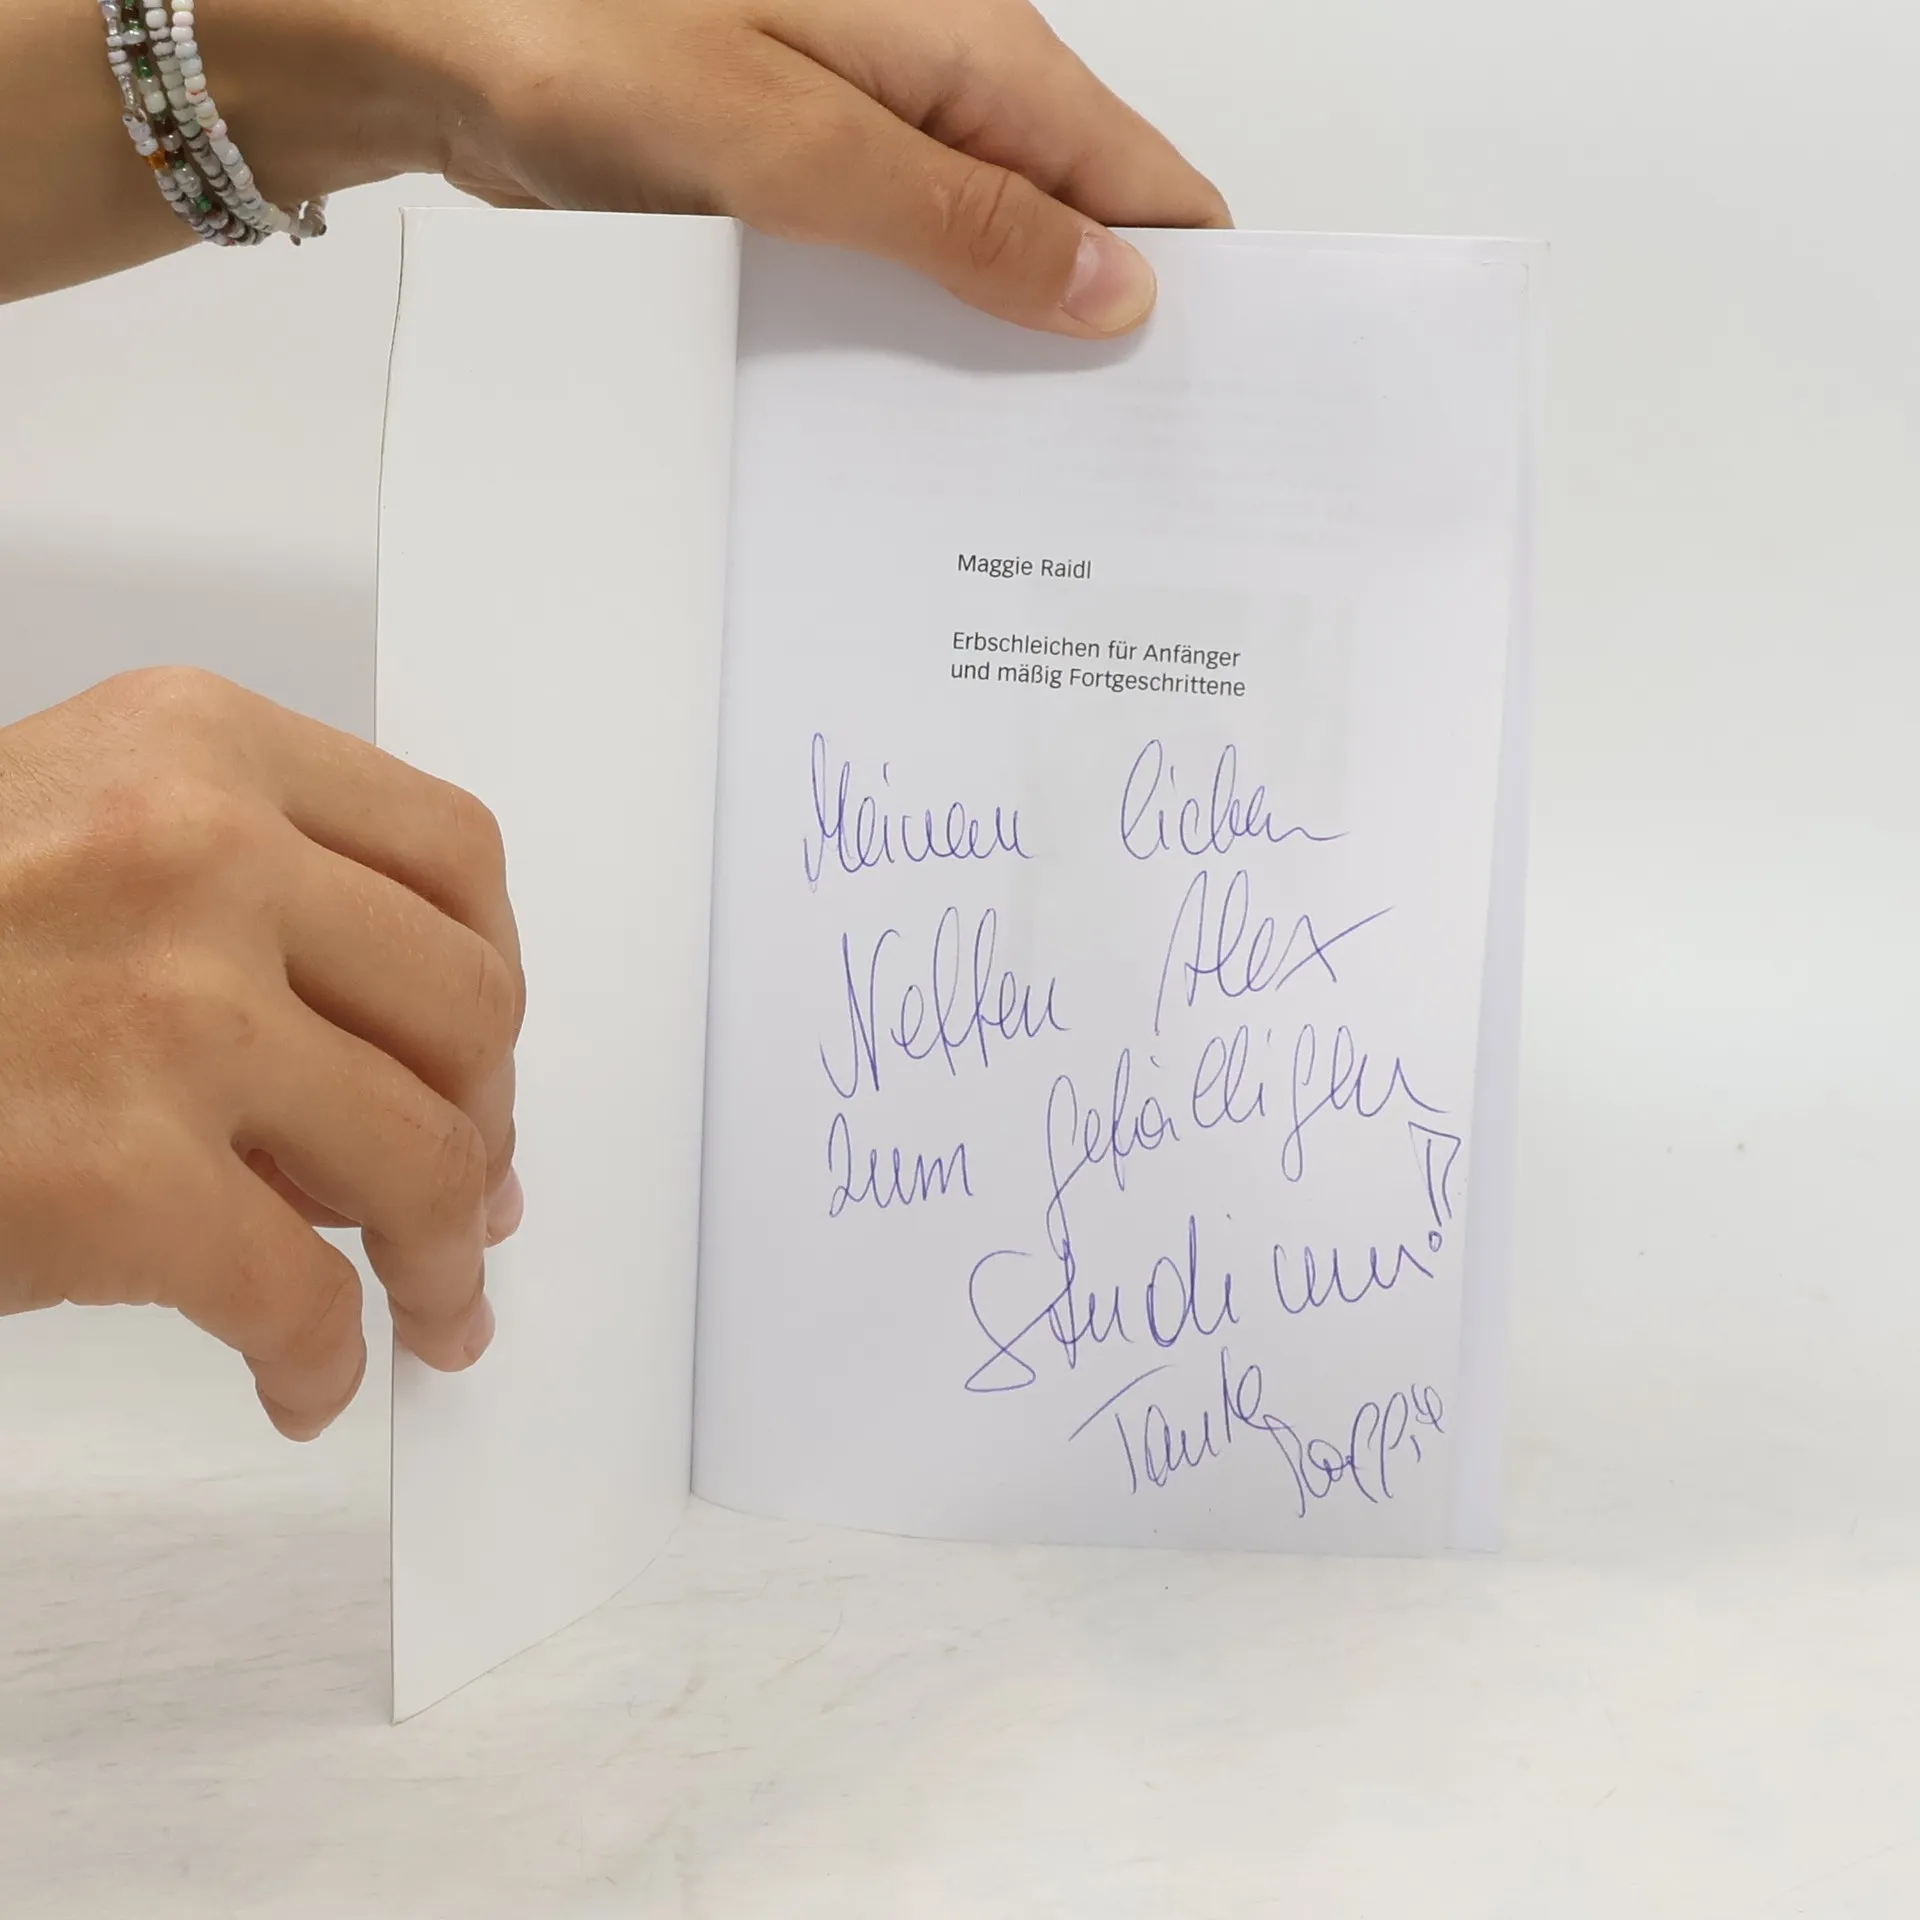 Maggie Raidl
Erbschleichen für Anfänger
und mäßig Fortgeschrittene
Meinem lieben
Neffen Alex
zum gefälligen
Studium!
Tante